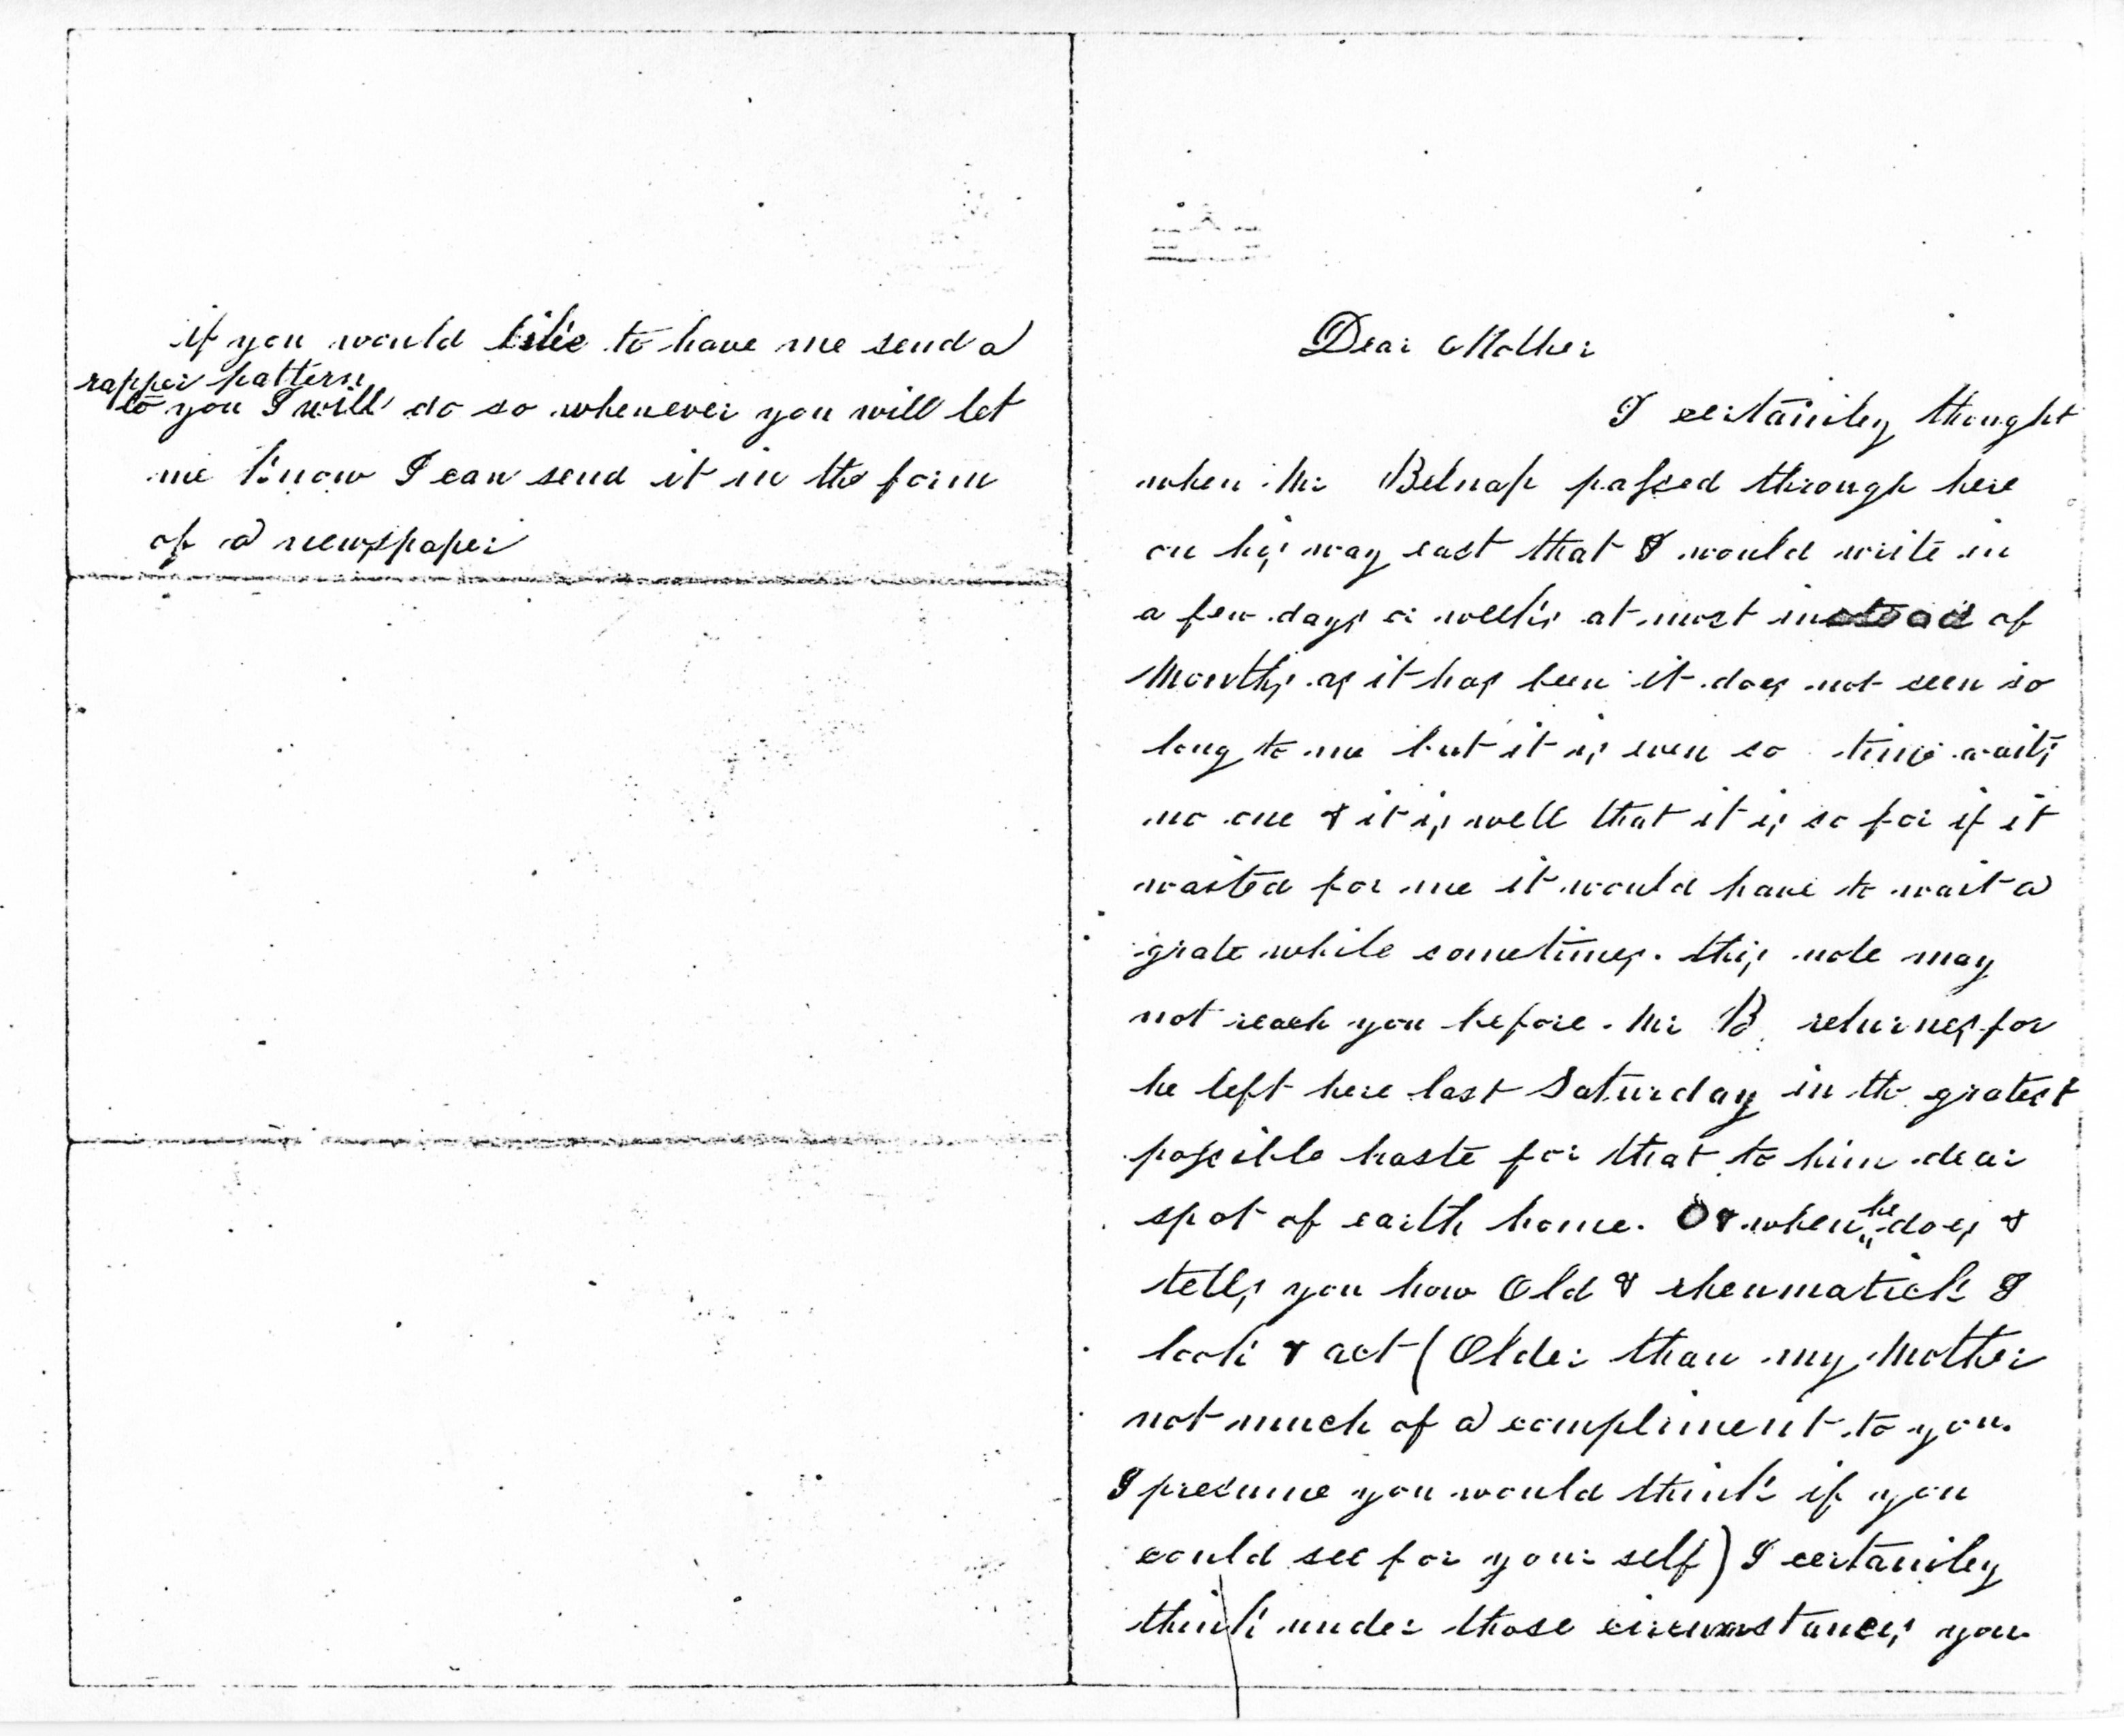 if you would like to have me send a
rapper pattern
to you I will do so whenever you will let
me know I can send it in the form
of a newspaper
Dear Mother
I certainley thought
when Mr Belnap passed through here
on his way east that I would write in
a few days or weeks at most instead of
Months as it has been it does not seen so
long to me but it is even so time waits
no one & it is well that it is so for if it
waited for me it would have to wait a
grate while sometimes. this note may
not reach you before Mr B. returnes for
he left here last Saturday in the gratest
possible haste for that to him dear
spot of earth home. Or when he does &
tells you how Old & rheumatick I
look & act (Older than my Mother
not much of a compliment to you.
I presume you would think if you
could see for your self) I certainley
think under those circumstances you